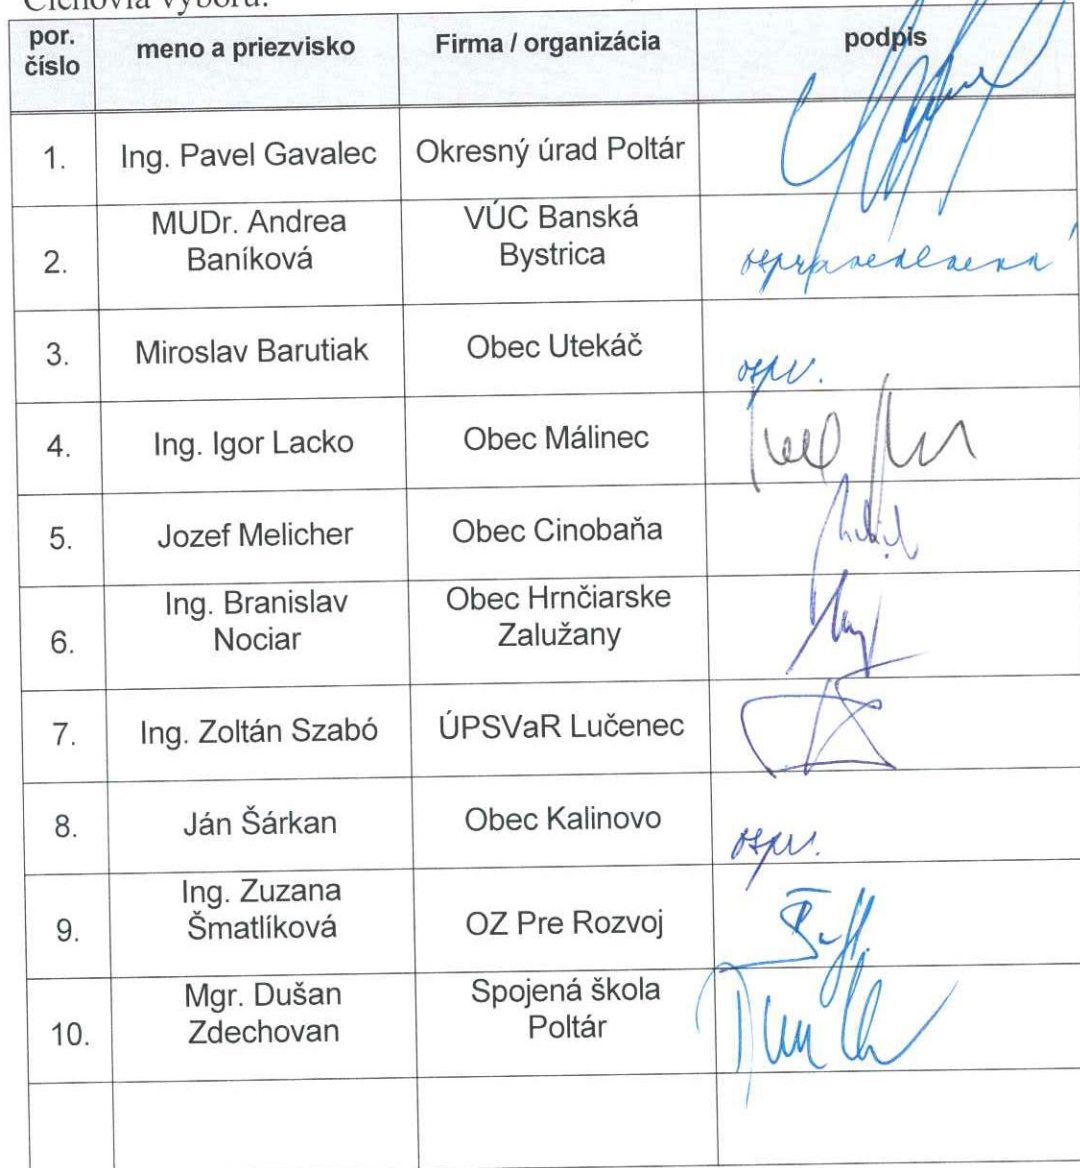 Členovia výboru:
por. číslo meno a priezvisko Firma / organizácia podpis
1. Ing. Pavel Gavalec Okresný úrad Poltár
2. MUDr. Andrea Baníková VÚC Banská Bystrica ospravedlnená
3. Miroslav Barutiak Obec Utekáč ospr.
4. Ing. Igor Lacko Obec Málinec
5. Jozef Melicher Obec Cinobaňa
6. Ing. Branislav Nociar Obec Hrnčiarske Zalužany
7. Ing. Zoltán Szabó ÚPSVaR Lučenec
8. Ján Šárkan Obec Kalinovo ospr.
9. Ing. Zuzana Šmatlíková OZ Pre Rozvoj
10. Mgr. Dušan Zdechovan Spojená škola Poltár